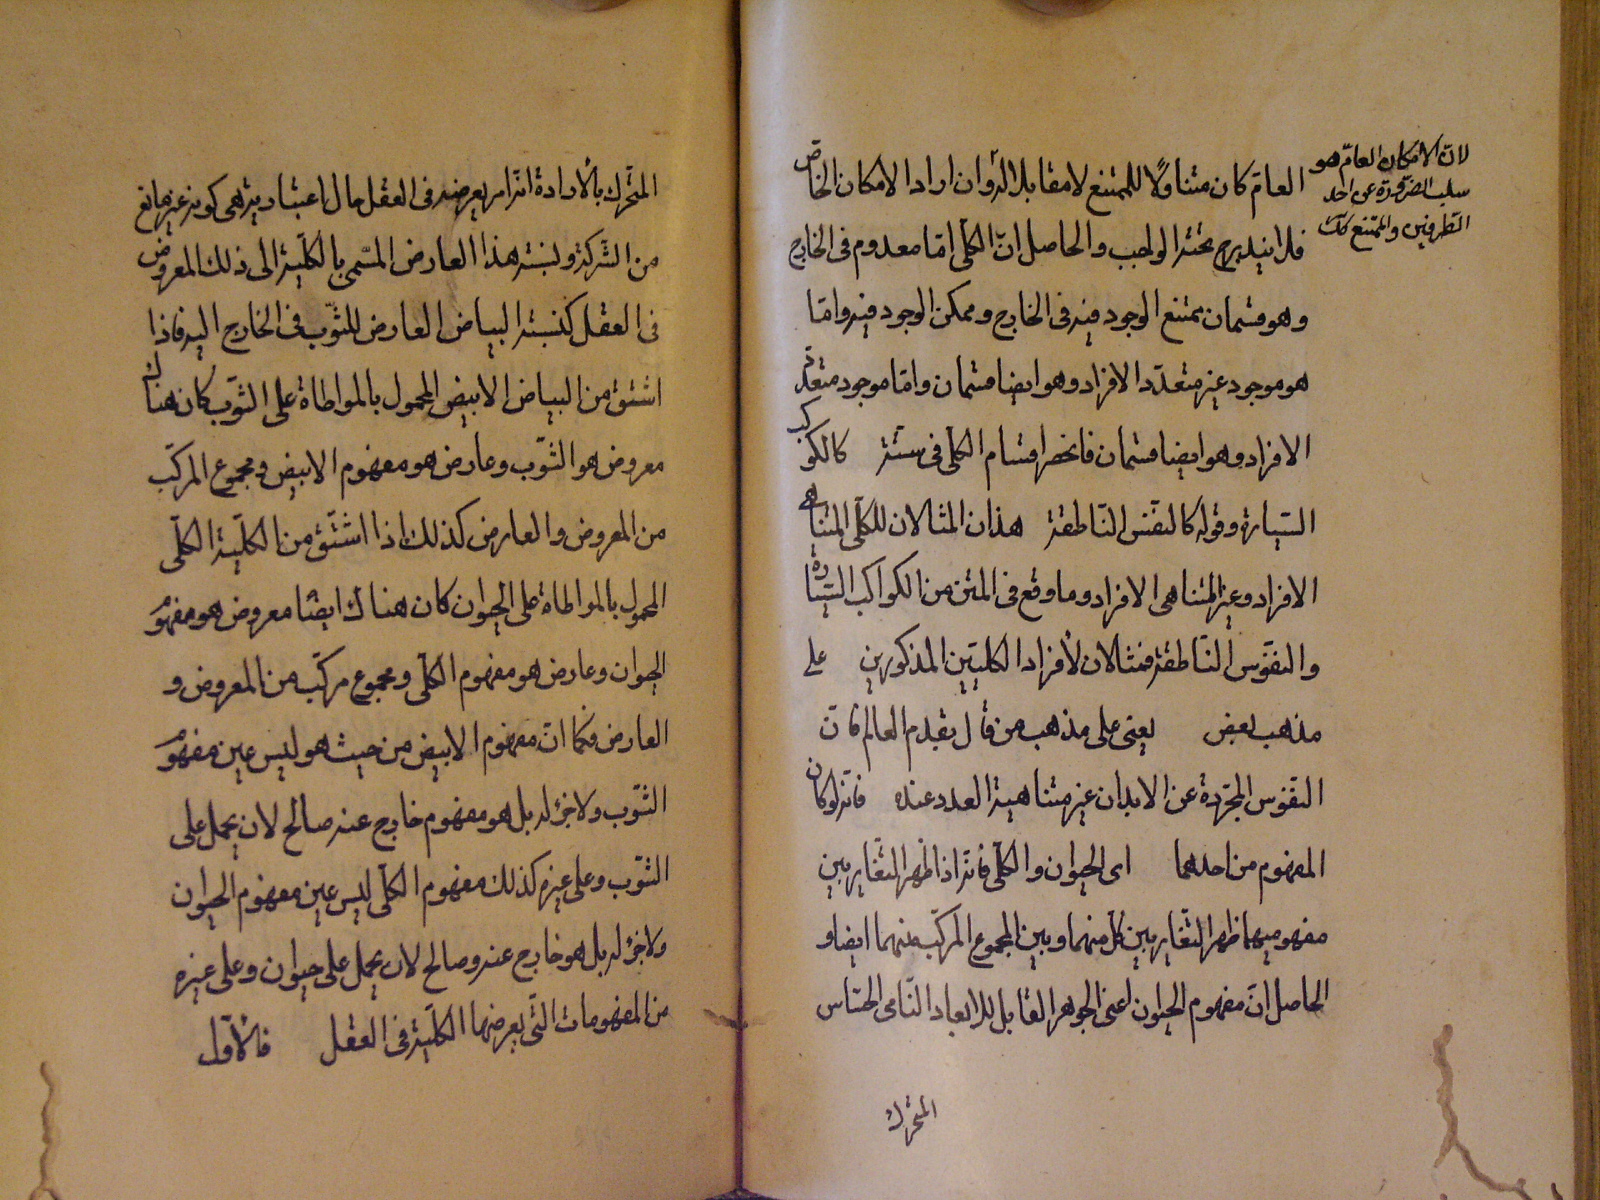 العام كان متناولا للممتنع لا مقابلا له وان اراد الامكان الخاص
فلا يندرج تحته الواجب والحاصل ان الكلى اما معدوم فى الخارج
وهو قسمان ممتنع الوجود فيه فى الخارج وممكن الوجود فيه واما
هو موجود غير متعدد الافراد وهو ايضا قسمان واما موجود متعدد
الافراد وهو ايضا قسمان فانحصر اقسام الكلى فى ستة كالكوكب
السيارة وقوله كالنفس الناطقة هذان المثالان للكلى المتناهى
الافراد وغير المتناهى الافراد وما وقع فى المتن من الكواكب السيارة
والنفوس الناطقة فمثالان لأفراد الكليين المذكورين على
مذهب بعض يعنى على مذهب من قال بقدم العالم فان
النفوس المجردة عن الابدان غير متناهية العدد عنده فانه لو كان
المفهوم من احدهما اى الحيوان والكلى فانه اذا ظهر التغاير بين
مفهوميهما ظهر التغاير بين كل منهما وبين المجموع المركب منهما ايضا و
الحاصل ان مفهوم الحيوان اعنى الجوهر القابل للابعاد النامى الحساس
المتحرك
لان الامكان العام هو
سلب الضرورة عن احد
الطرفين والممتنع كك
المتحرك بالأرادة
من الشركة ونسبة هذا العارض المسمى بالكلية الى ذلك المعروض
فى العقل كنسبة البياض العارض للثوب فى الخارج اليه فاذا
اشتق من البياض الابيض المحمول بالمواطاة على الثوب كان هناك
معروض هو الثوب وعارض هو مفهوم الابيض ومجموع المركب
من المعروض والعارض كذلك اذا اشتق من الكلية الكلى
المحمول بالمواطاة على الحيوان كان هناك ايضا معروض هو مفهوم
الحيوان وعارض هو مفهوم الكلى ومجموع مركب من المعروض و
العارض فكما ان مفهوم الابيض من حيث هو ليس عين مفهوم
الثوب ولا جزؤ له بل هو مفهوم خارج عنه صالح لان يحمل على
الثوب وعلى غيره كذلك مفهوم الكلى ليس عين مفهوم الحيوان
ولا جزؤ له بل هو خارج عنه وصالح لان يحمل على حيوان وعلى غيره
من المفهومات التى يعرضها الكلية فى العقل فالأول